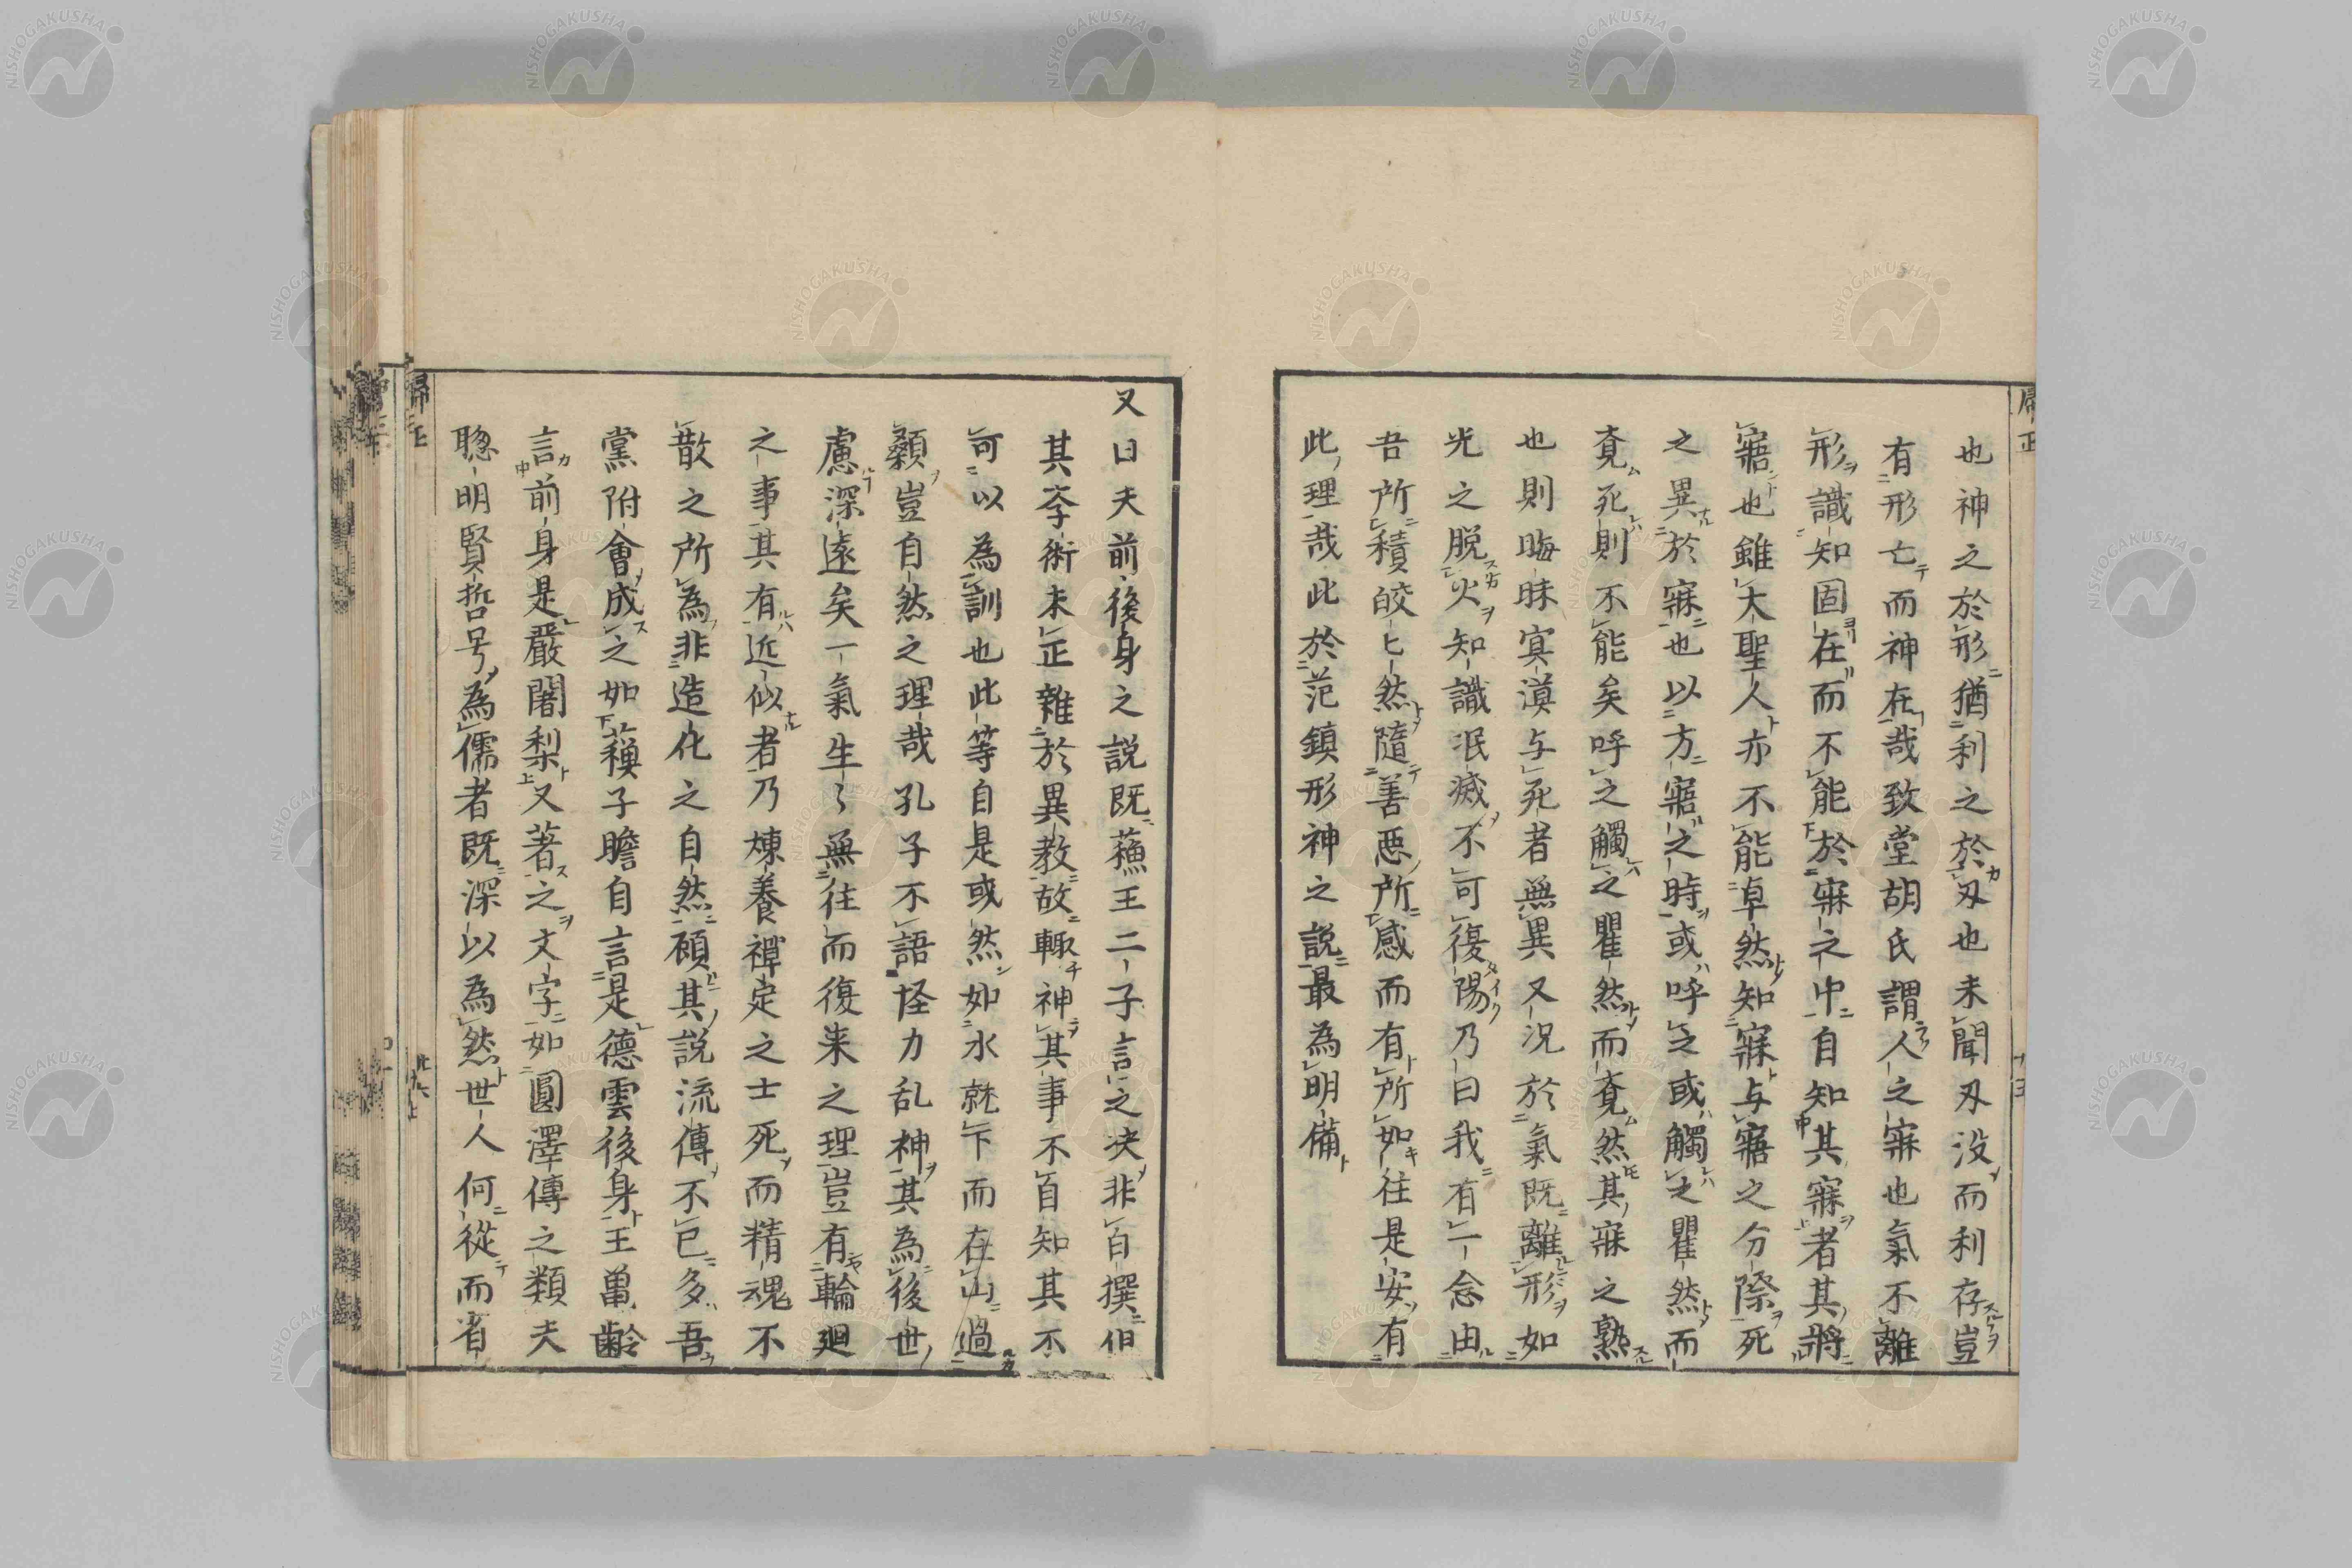 也神之於形猶利之於刄也未聞刄没而利存豈
有形亡而神在哉致堂胡氏謂人之寐也氣不離
形識知固在而不能於寐之中自知其寐者其將
寤也雖大聖人亦不能卓然知寐与寤之分際死
之異於寐也以方寤之時或呼之或觸之瞿然而
覔死則不能矣呼之觸之瞿然而覔然其寐之熟
也則晦昧冥漠与死者無異又况於氣既離形如
光之脱火知識泯滅不可復陽乃曰我有一念由
吾所積皎ヒ然隨善悪所感而有所如往是安有
此理哉此於范鎮形神之説最為明備
又曰夫前後身之説既蘓王二子言之决非自撰但
其斈術未正雜於異教故輙神其事不自知其不
可以為訓也此等自是或然如水就下而在山過
顙豈自然之理哉孔子不語怪力乱神其為後世
慮深遠矣一氣生〻無往而復来之理豈有輪廻
之事其有近似者乃煉養禪定之士死而精魂不
散之所為非造化之自然顧其説流傳不已多吾
黨附會成之如蘓子瞻自言是德雲後身王亀齢
言前身是嚴闍梨又著之文字如圓澤傳之類夫
聡明賢哲号為儒者既深以為然世人何從而省